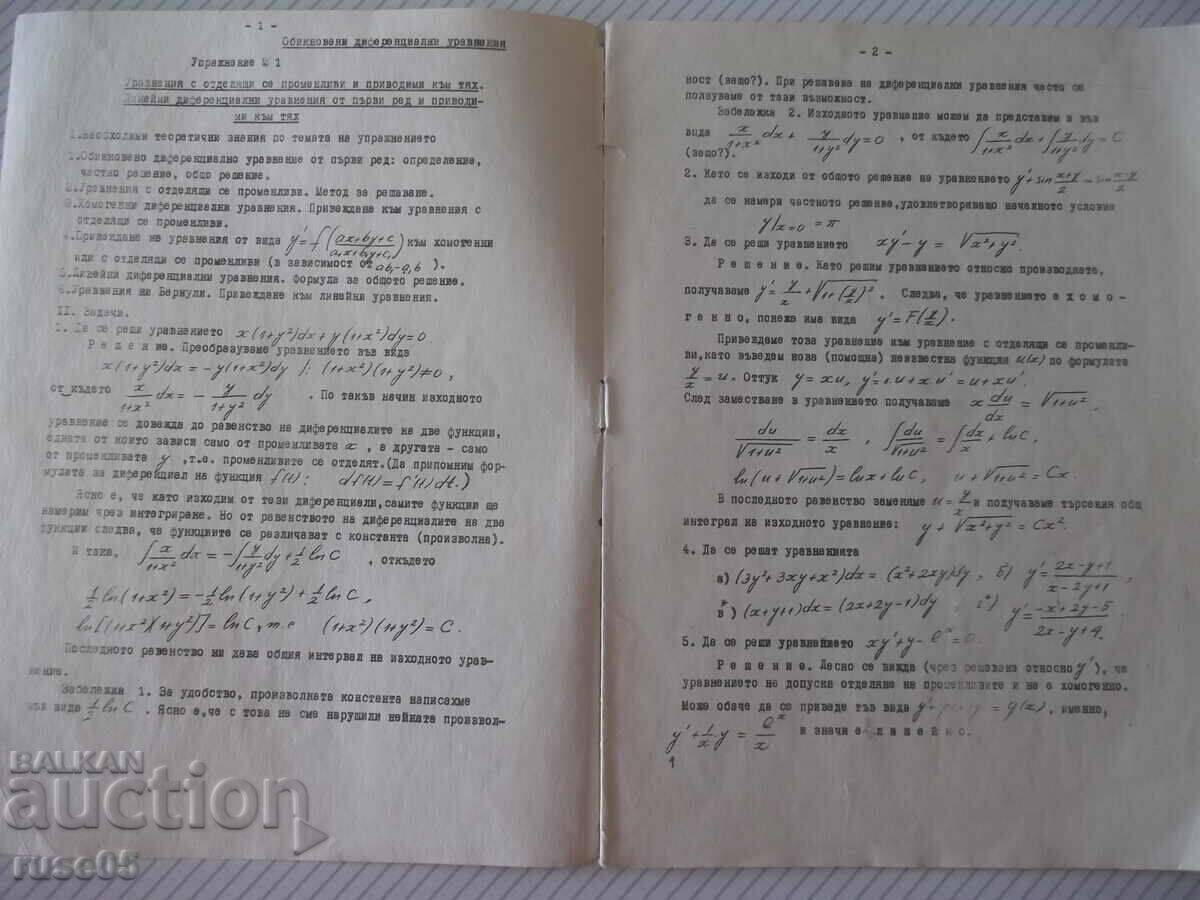 - 1 -
Обикновени диференциални уравнения
Упражнение № 1
Уравнения с отделящи се променливи и приводими към тях.
Линейни диференциални уравнения от първи ред и приводи-
ми към тях
I. Необходими теоретични знания по темата на упражнението
1. Обикновено диференциално уравнение от първи ред: определение,
частно решение, общо решение.
2. Уравнения с отделящи се променливи. Метод за решаване.
3. Хомогенни диференциални уравнения. Привеждане към уравнения с
отделящи се променливи.
4. Привеждане на уравнения от вида y'=f((ax+by+c)/(a₁x+b₁y+c₁)) към хомогенни
или с отделящи се променливи (в зависимост от ab₁-a₁b ).
5. Линейни диференциални уравнения. Формула за общото решение.
6. Уравнения на Бернули. Привеждане към линейни уравнения.
II. Задачи.
1. Да се реши уравнението x(1+y²)dx+y(1+x²)dy=0.
Р е ш е н и е. Преобразуваме уравнението във вида
x(1+y²)dx = -y(1+x²)dy |: (1+x²)(1+y²)≠0,
от където x/(1+x²) dx = - y/(1+y²) dy . По такъв начин изходното
уравнение се довежда до равенство на диференциалите на две функции,
едната от които зависи само от променливата x, а другата - само
от променливата y ,т.е. променливите се отделят.(Да припомним фор-
мулата за диференциал на функция f(t): df(t)=f'(t)dt.)
Ясно е, че като изходим от тези диференциали,самите функции ще
намерим чрез интегриране. Но от равенството на диференциалите на две
функции следва, че функциите се различават с константа (произволна).
И така, ∫x/(1+x²) dx = -∫y/(1+y²) dy + ½ ln C , откъдето
½ ln(1+x²) = -½ ln(1+y²) + ½ ln C,
ln[(1+x²)(1+y²)] = ln C, т.е (1+x²)(1+y²) = C.
Последното равенство ни дава общия интервал на изходното урав-
нение.
Забележка 1. За удобство, произволната константа написахме
във вида ½ ln C . Ясно е,че с това не сме нарушили нейната произвол-
- 2 -
ност (защо?). При решаване на диференциални уравнения често се
ползуваме от тази възможност.
Забележка 2. Изходното уравнение можем да представим и във
вида x/(1+x²) dx + y/(1+y²) dy = 0 , от където ∫x/(1+x²) dx + ∫y/(1+y²) dy = C
(защо?).
2. Като се изходи от общото решение на уравнението y'+sin (x+y)/2 = sin (x-y)/2
да се намери частното решение,удовлетворяващо началното условие
y|x=0 = π
3. Да се реши уравнението xy'-y = √(x²+y²).
Р е ш е н и е. Като решим уравнението относно производната,
получаваме y' = y/x + √(1+(y/x)²) . Следва, че уравнението е х о м о -
г е н н о, понеже има вида y' = F(y/x).
Привеждаме това уравнение към уравнение с отделящи се променли-
ви,като въведем нова (помощна) неизвестна функция u(x) по формулата
y/x = u. Оттук y = xu, y'=1.u+xu' = u+xu'.
След заместване в уравнението получаваме x du/dx = √(1+u²),
du/√(1+u²) = dx/x , ∫du/√(1+u²) = ∫dx/x + ln C,
ln(u+√(1+u²)) = ln x + ln C, u+√(1+u²) = Cx.
В последното равенство заменяме u = y/x и получаваме търсения общ
интеграл на изходното уравнение: y + √(x²+y²) = Cx².
4. Да се решат уравненията
а) (3y²+3xy+x²)dx = (x²+2xy)dy , б) y' = (2x-y+1)/(x-2y+1) ,
*в) (x+y+1)dx = (2x+2y-1)dy , г*) y' = (-x+2y-5)/(2x-y+4).
5. Да се реши уравнението xy'+y-eˣ=0.
Р е ш е н и е. Лесно се вижда (чрез решаване относно y'), че
уравнението не допуска отделяне на променливите и не е хомогенно.
Може обаче да се приведе във вида y'+p(x)y = q(x), именно,
y' + 1/x y = eˣ/x и значи е л и н е й н о.
1
BALKAN
auction
ruse05